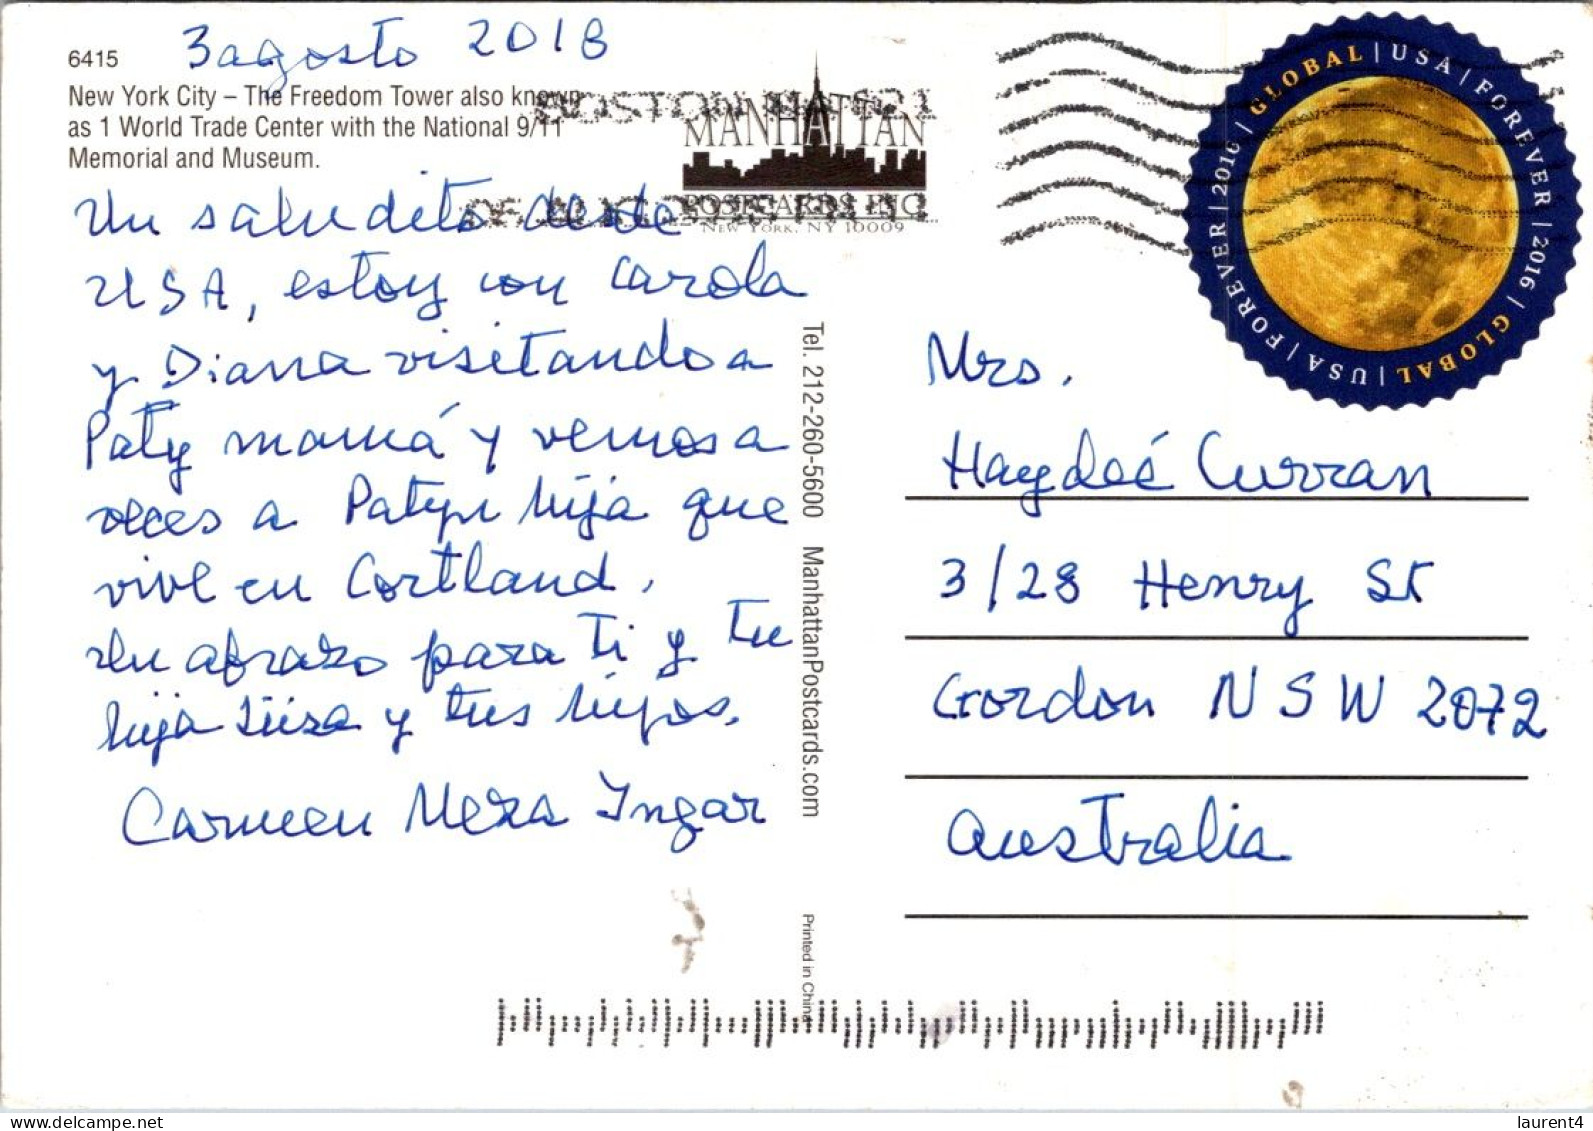 6415
3 agosto 2018
New York City – The Freedom Tower also known
as 1 World Trade Center with the National 9/11
Memorial and Museum.
Un saludito desde
USA, estoy con Carola
y Diana visitando a
Paty mamá y vemos a
veces a Paty hija que
vive en Cortland.
Un abrazo para ti y tu
hija y tus hijos.
Carmen Meza Ingar
MANHATTAN
POSTCARDS INC
NEW YORK, NY 10009
Tel. 212-260-5600 ManhattanPostcards.com
Printed in China
GLOBAL | USA | FOREVER | 2016 / GLOBAL | USA | FOREVER | 2016 /
Mrs.
Haydeé Curran
3/28 Henry St
Gordon NSW 2072
Australia
laurent4